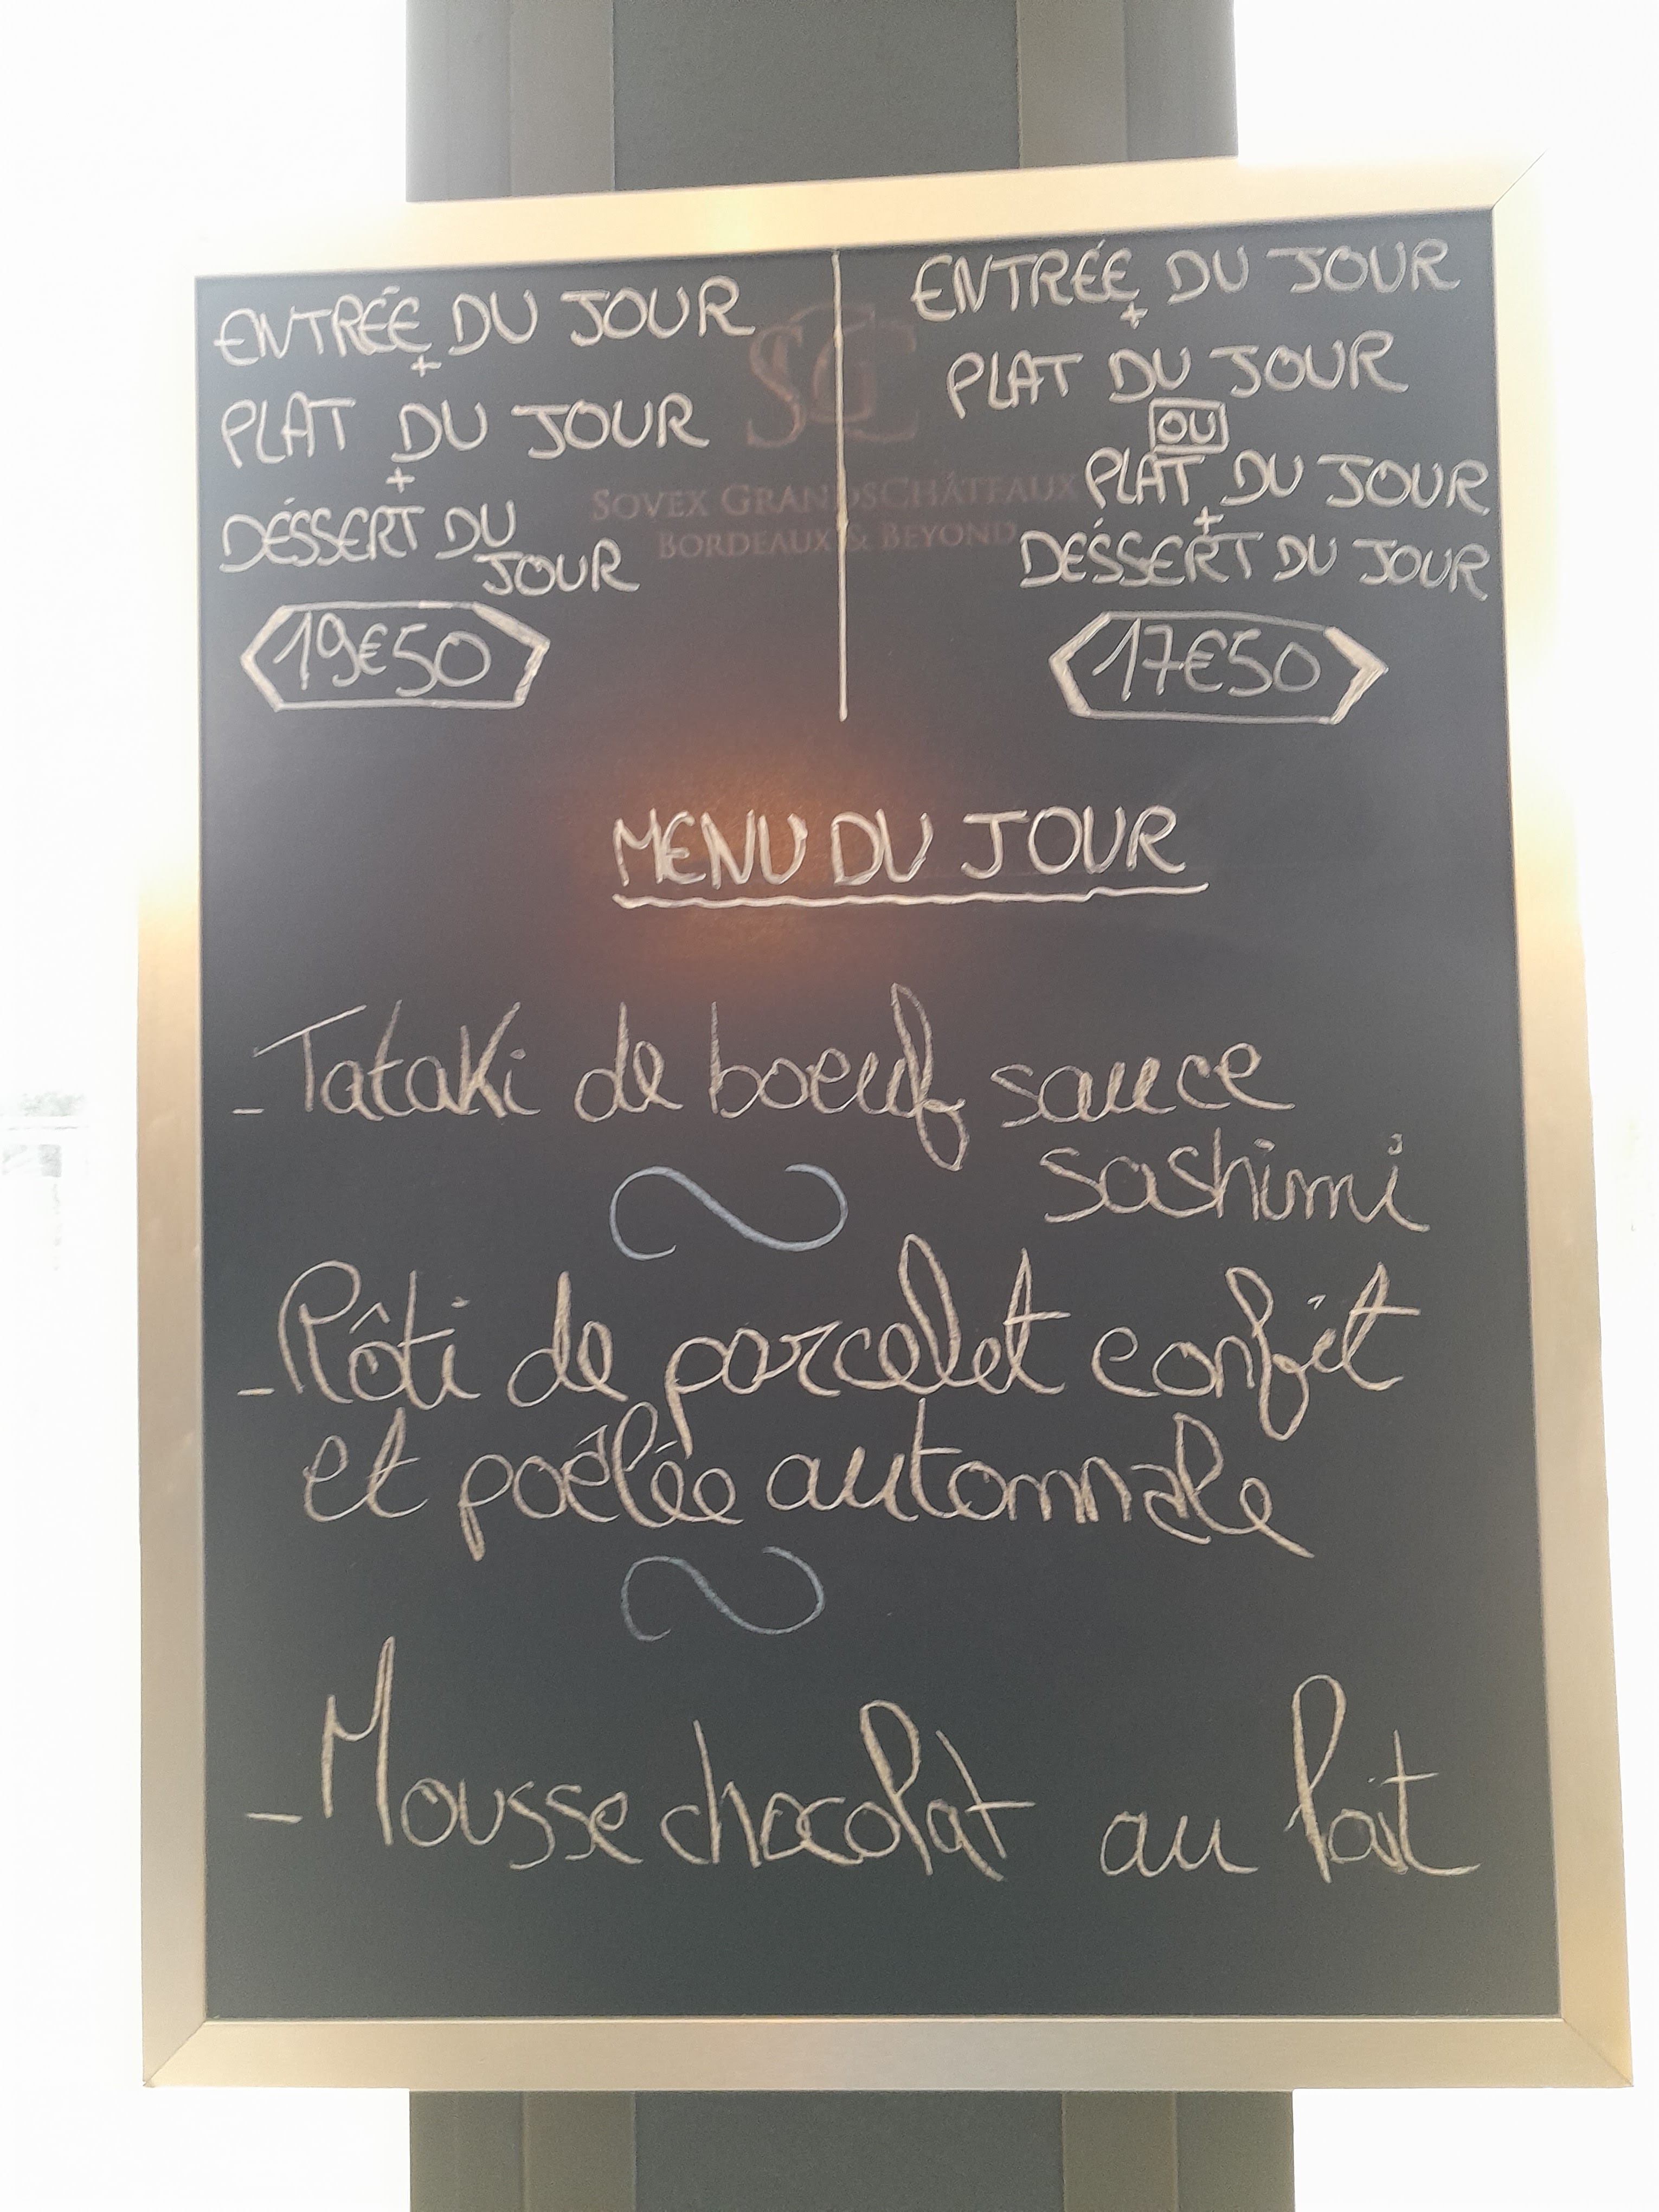 ENTRÉE DU JOUR
+
PLAT DU JOUR
+
DÉSSERT DU
JOUR
19€50
ENTRÉE DU JOUR
+
PLAT DU JOUR
OU
PLAT DU JOUR
+
DÉSSERT DU JOUR
17€50
SGC
SOVEX GRANDSCHÂTEAUX
BORDEAUX & BEYOND
MENU DU JOUR
- Tataki de boeuf sauce
sashimi
- Rôti de porcelet confit
et poêlée automnale
- Mousse chocolat au lait